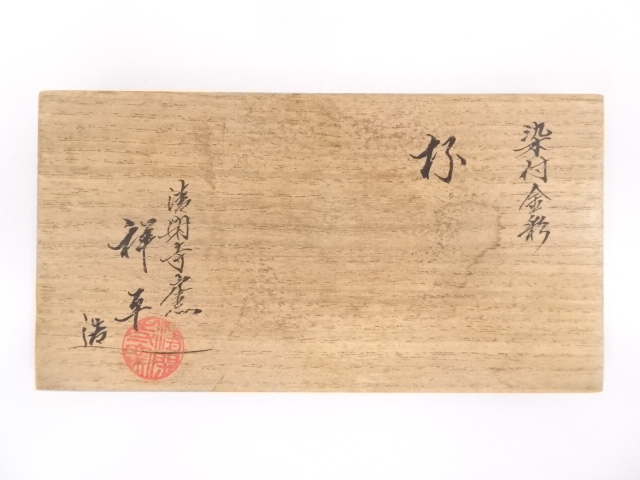 染付金彩
杯
清閑寺窯
祥平
造